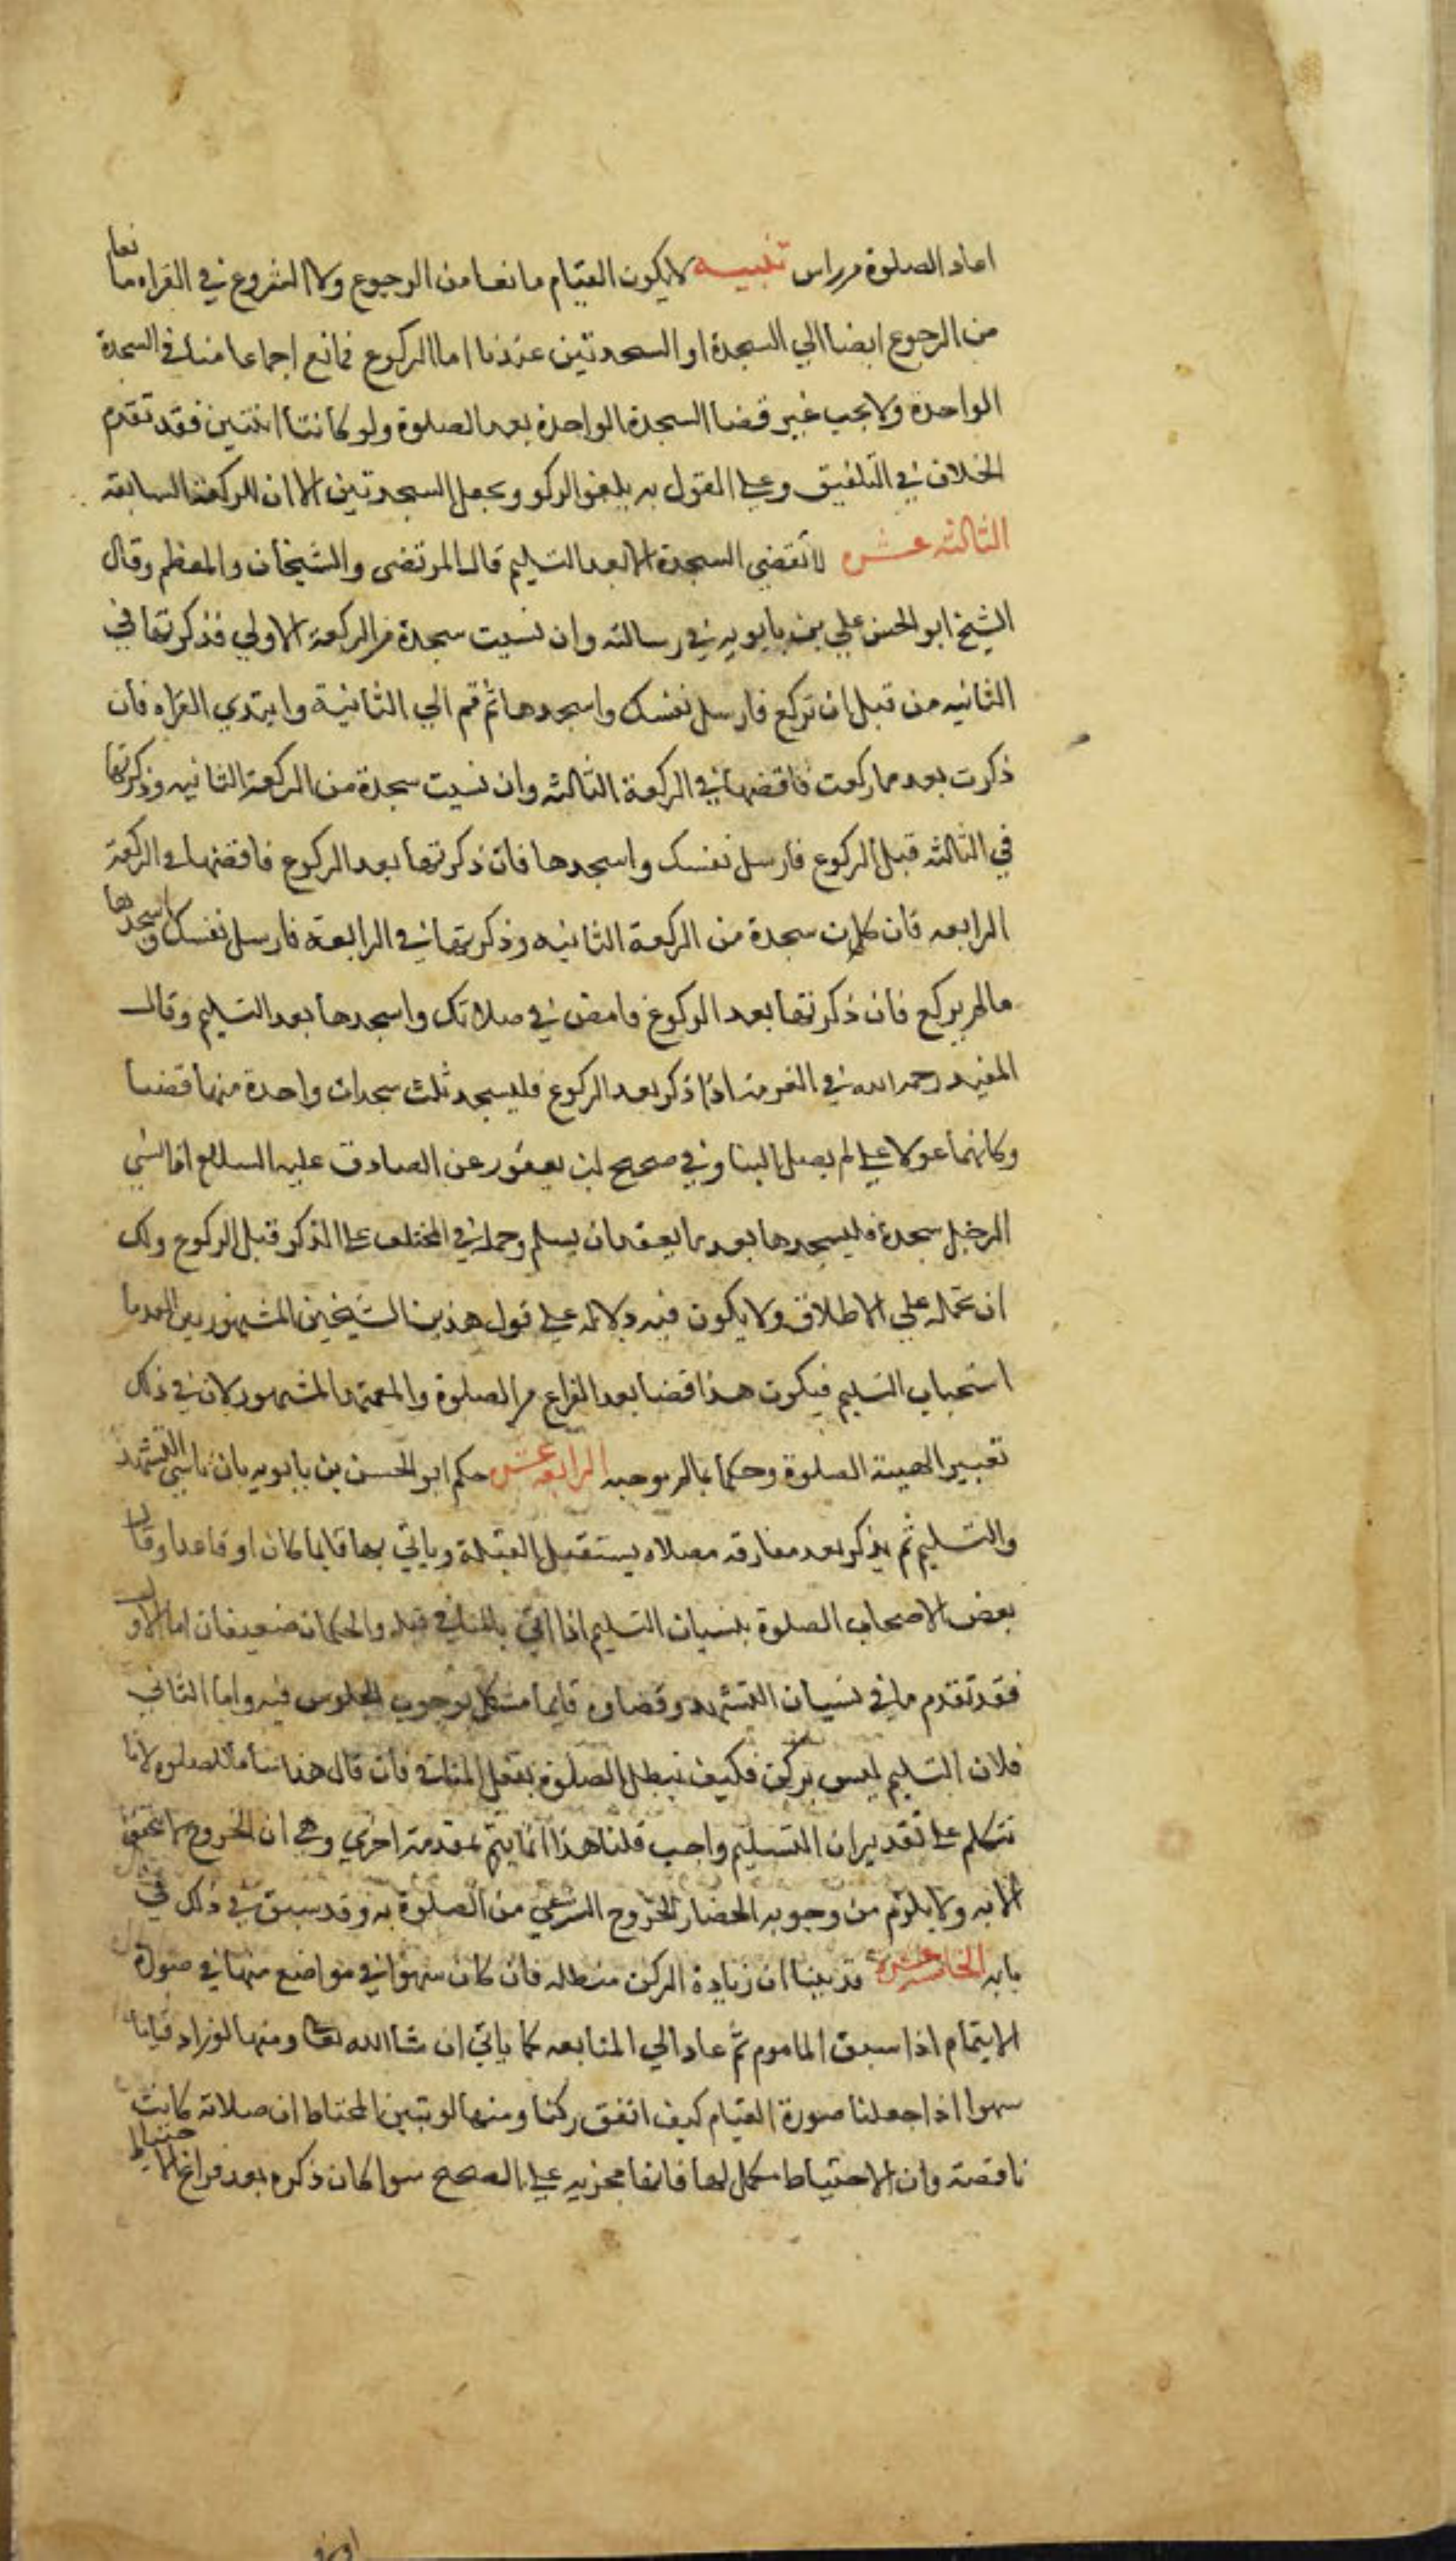 اعاد الصلوة من راس تنبيه لا يكون القيام مانعا من الرجوع ولا الشروع في القراه مانعا
من الرجوع ايضا الي السجدة او السجدتين عندنا اما الركوع فمانع اجماعا منا في السجدة
الواحدة ولا يجب غير قضا السجدة الواحدة بعد الصلوة ولو كانتا اثنتين فقد تقدم
الخلاف في التلفيق وعلى القول به يلغو الركو ويجعل السجدتين الان للركعة السابقه
الثالثه عشر لا تقضي السجدة الا بعد التسليم قال المرتضى والشيخان والمعظم وقال
الشيخ ابو الحسن علي بن بابويه في رسالته وان نسيت سجدة من الركعة الاولي فذكرتها في
الثانيه من قبل ان تركع فارسل نفسك واسجدها ثم قم الي الثانية وابتدي القراه فان
ذكرت بعد ما ركعت فاقضها في الركعة الثالثه وان نسيت سجدة من الركعة الثانيه وذكرتها
في الثالثه قبل الركوع فارسل نفسك واسجدها فان ذكرتها بعد الركوع فاقضها في الركعة
الرابعه فان كانت سجدة من الركعة الثانيه وذكرتها في الرابعة فارسل نفسك واسجدها
مالم يركع فان ذكرتها بعد الركوع فامض في صلاتك واسجدها بعد التسليم وقال
المفيد رحمه الله في الغرية اذا ذكر بعد الركوع فليسجد ثلث سجدات واحدة منها قضا
وكانهما عولا على لم يصل الينا وفي صحيح ابن يعفور عن الصادق عليه السلام اذا نسي
الرجل سجدة فليسجدها بعد ما يقعد ان يسلم وحمل في المختلف على الذكر قبل الركوع ولك
ان تحمله علي الاطلاق ولا يكون فيه دلالة على قول هذين الشيخين المشهورين لعدما
استحباب التسليم فيكون هذا قضا بعد الفراغ من الصلوة والمعتمد المشهور لان في ذلك
تغيير الهيئة الصلوة وحكما بمالم يوجبه الرابعه عشر حكم ابو الحسن بن بابويه بان ناسي التشهد
والتسليم ثم يذكر بعد مفارقه مصلاه يستقبل القبلة وياتي بها قايما كان او قاعدا وقال
بعض الاصحاب الصلوة بنسيان التسليم اذا اتي بالمنافي قبله والحكمان ضعيفان اما الاول
فقد تقدم ما في نسيان التشهد وقضاوه قايما مشكل لوجوب الجلوس فيه واما الثاني
فلان التسليم ليس بركن فكيف تبطل الصلوة بفعل المنافي فان قال هذا مناف للصلوه لانا
نتكلم على تقدير ان التسليم واجب قلنا هذا انما يتم بمقدمة اخري وهي ان الخروج لا يتحقق
الا به ولا يلزم من وجوبه انحصار الخروج الشرعي من الصلوة به وقد سبق في ذلك في
بابه الخامسه عشره قد بينا ان زيادة الركن مبطله فان كان سهوا في مواضع منها في صورة
الايتمام اذا سبق الماموم ثم عاد الي المتابعه كما ياتي ان شا الله تعا ومنها لو زاد قياما
سهوا اذا جعلنا صورة القيام كيف اتفق ركنا ومنها لو تبين المحتاط ان صلاته كانت
ناقصة وان الاحتياط مكمل لها فانها مجزيه على الصحيح سوا كان ذكره بعد فراغ الاحتياط